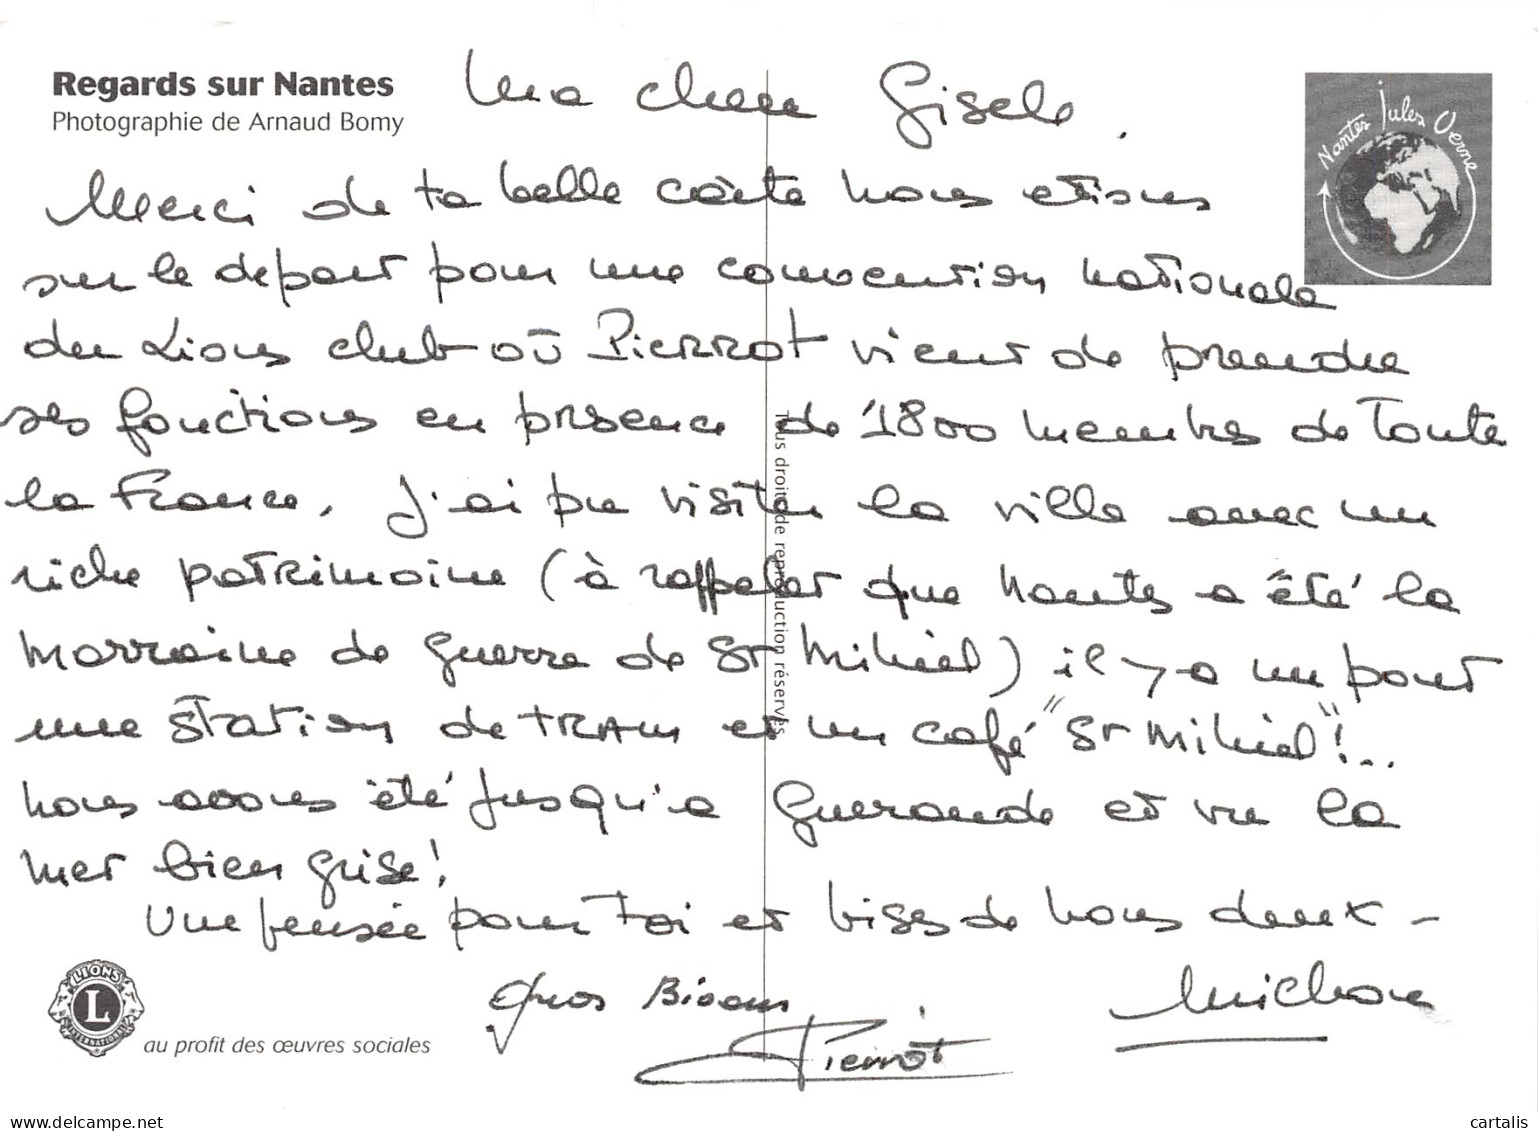 Regards sur Nantes
Photographie de Arnaud Bomy
Nantes Jules Verne
Ma chere Gisele,
Merci de ta belle carte nous etions
sur le depart pour une convention nationale
des Lions club où Pierrot vient de prendre
ses fonctions en présence de 1800 membres de Toute
la France, j'ai pu visiter la ville avec un
riche patrimoine (à rappeler que Nantes a été la
marraine de guerre de St Mihiel) il y a un pont
une station de tram et un café "St Mihiel"!...
nous avons été jusqu'a Guerande et vu la
mer bien grise!
Une pensée pour Toi et bises de nous deux -
Gros Bisous
Pierrot
LIONS
L
INTERNATIONAL
au profit des œuvres sociales
Tous droits de reproduction réservés
www.delcampe.net
cartalis